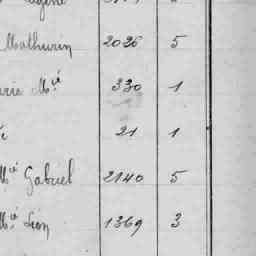 Mathurin 2026 5
arie Mié 330 1
21 1
Mié Gabriel 2140 5
Mié Léon 1369 3